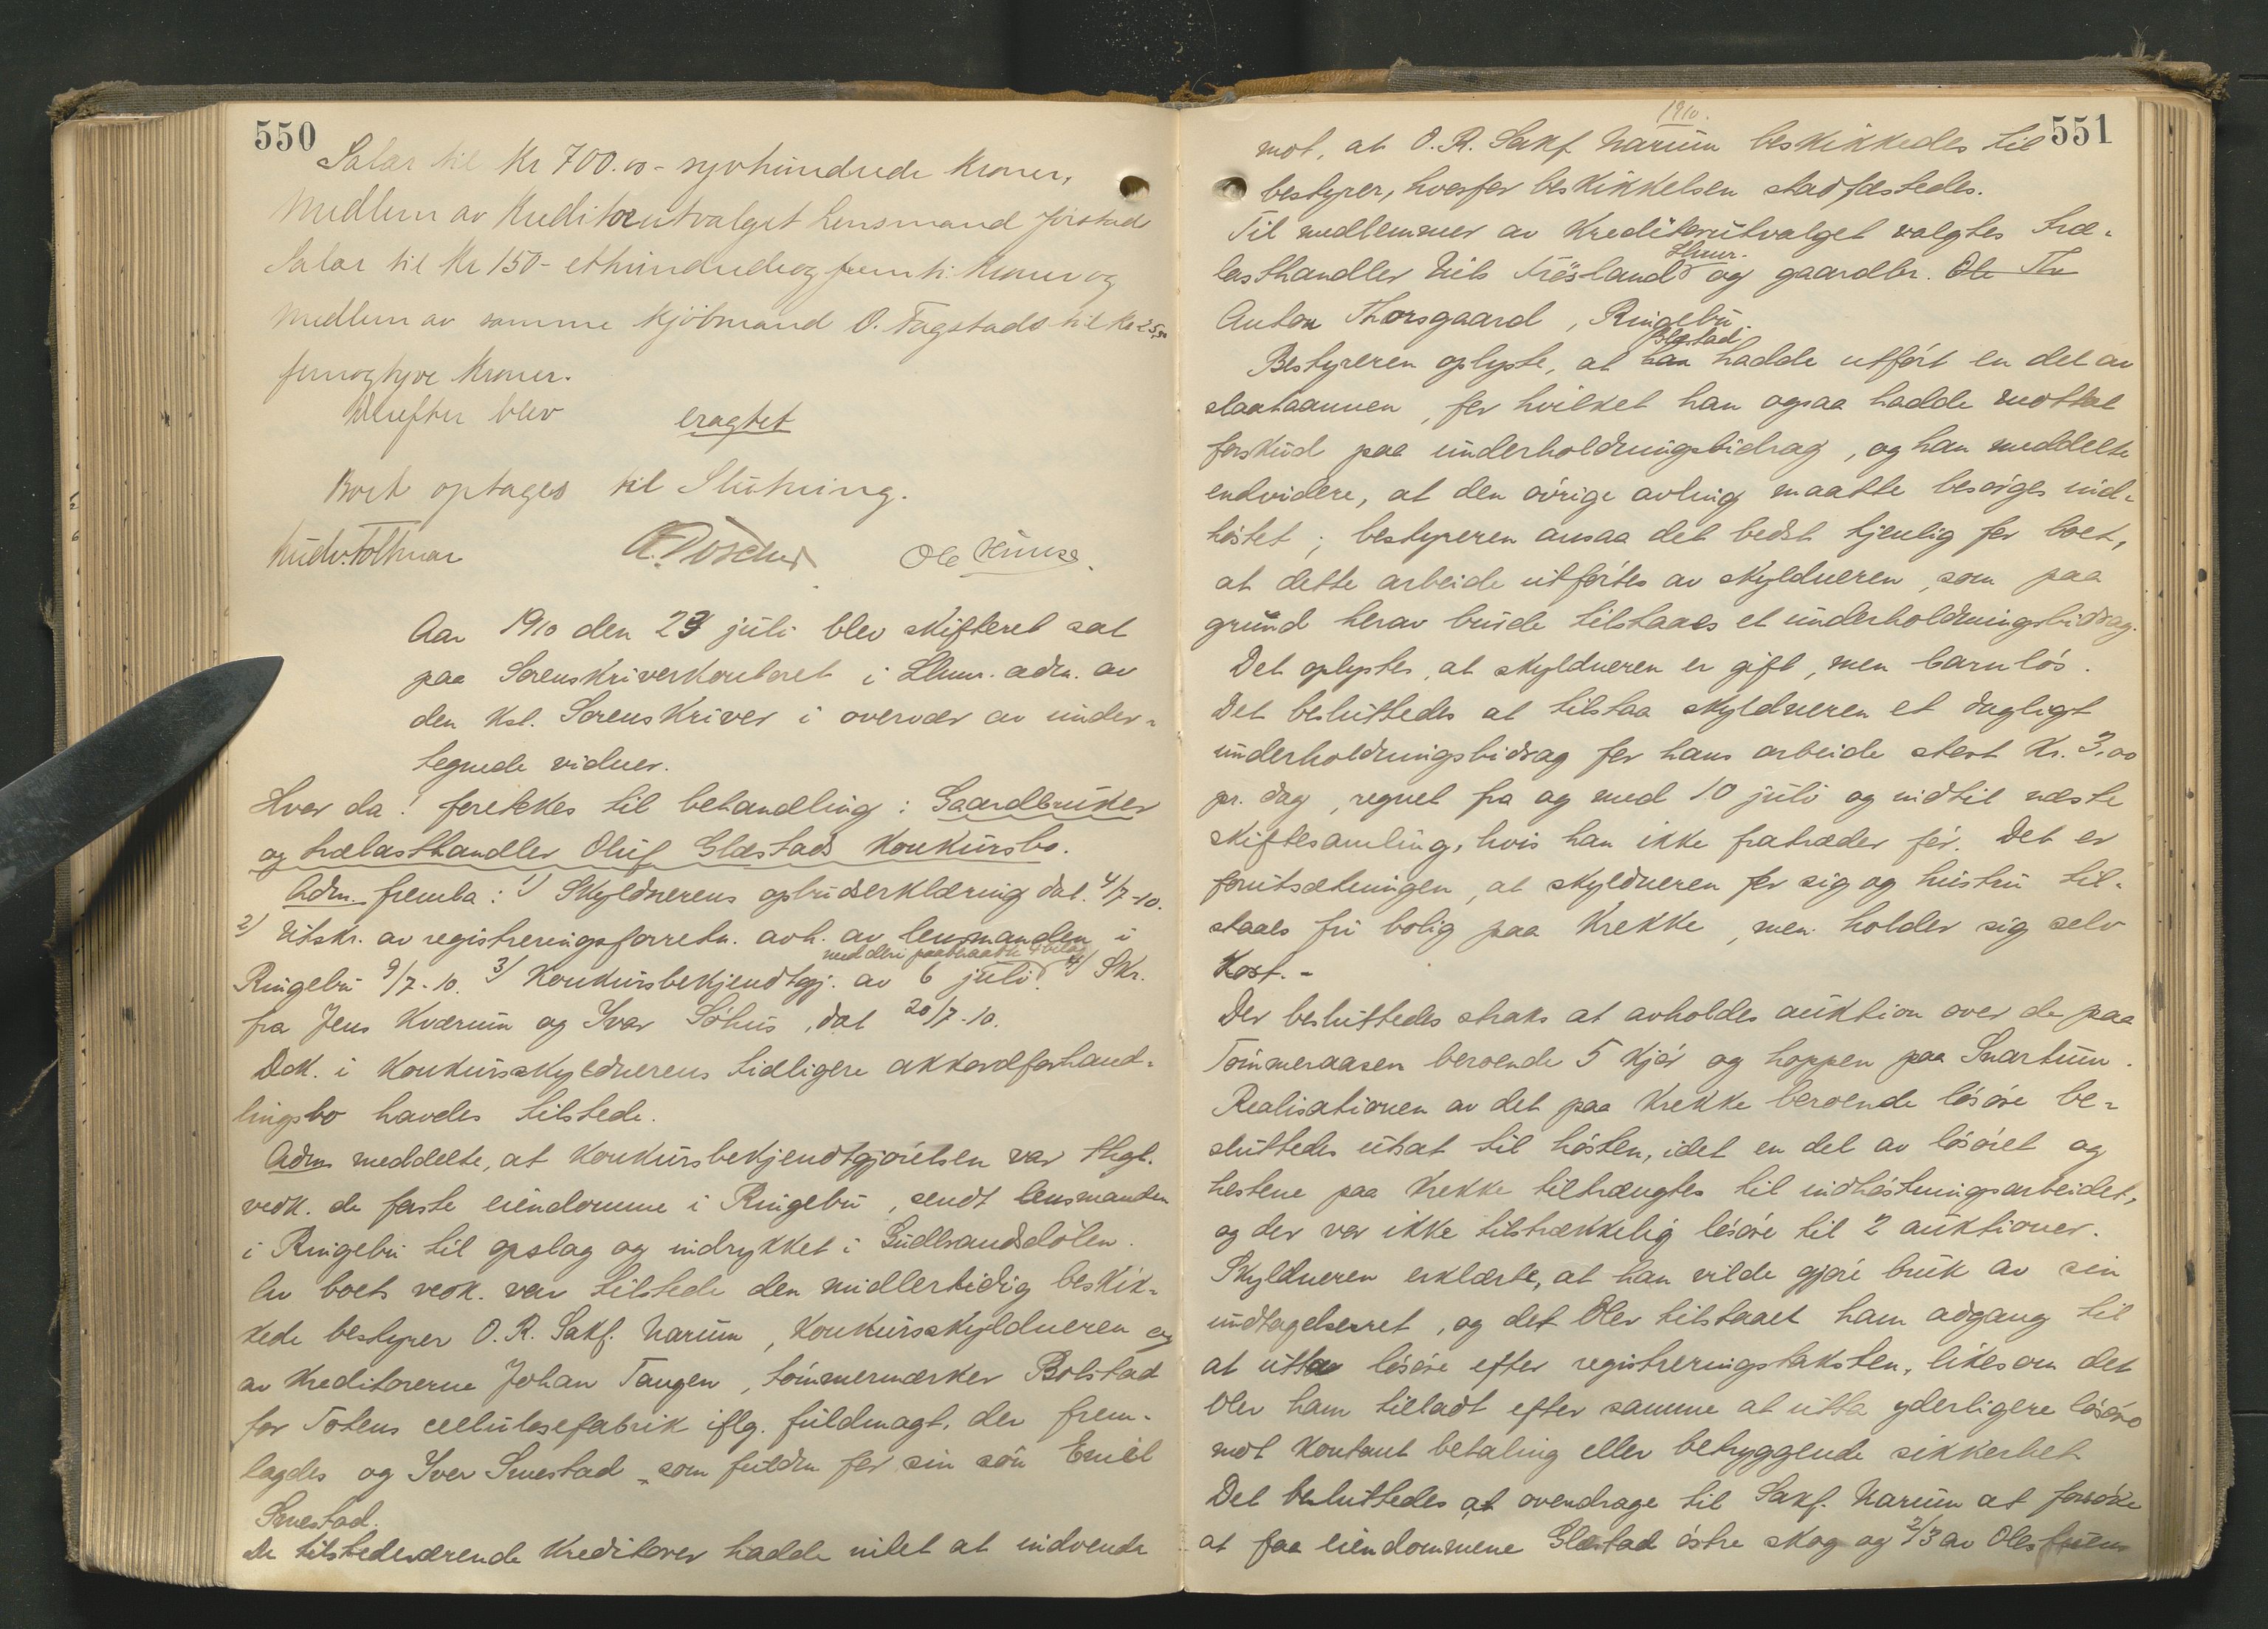 550
Salar til Kr 700.00 - syvhundrede Kroner,
Medlem av Kreditorutvalget Lensmand Jirstads
Salar til Kr 150 - ethundredeogfemti Kroner og
Medlem av samme Kjöbmand O. Fagstads til Kr 25,00
femogtyve Kroner.
Derefter blev eragtet
Boet optages til Slutning.
A. Poscher Ole Hunse.
Aar 1910 den 23 juli blev skifteret sat
paa Sorenskriverkontoret i Llhmr. adm. av
den Kst. Sorenskriver i overvær av under-
tegnede vidner.
Hvor da! foretokkes til behandling: Gaardbruker
og trælasthandler Oluf Glæstads Konkursbo.
Adm. fremla: 1) Skyldnerens opbudserklæring dat. 4/7-10.
2) Utskr. av registreringsforretn. avh. av lensmanden i
Ringebu 9/7-10. 3/ Konkursbekjendtgj. av 6 juli med deri paabraabte bilag 4/ Skr.
fra Jens Kværum og Ivar Söhus, dat 20/7-10.
Dok. i Konkursskyldnerens tidligere akkordforhand-
lingsbo havdes tilstede.
Adm meddelte, at Konkursbekjendtgjörelsen var thgl.
vedk. de faste eiendomme i Ringebu, sendt lensmanden
i Ringebu til opslag og indrykket i Gudbrandsdölen.
Av boets vedk. var tilstede den midlertidig beskik-
kede bestyrer O.R. Sakf. Narum, Konkursskyldneren og
av Kreditorerne Johan Tangen, tömmermærker Bolstad
for Totens cellulosefabrik iflg. fuldmagt, der frem-
lagdes og Iver Smestad som fuldm for sin sön Emil
Smestad.
De tilstedeværende Kreditorer hadde intet at indvende
1910.
551
mot, at O.R. Sakf. Narum beskikkedes til
bestyrer, hvorfor beskikkelsen stadfæstedes.
Til medlemmer av Kreditorutvalget valgtes træ-
lasthandler Nils Frösland Lhmr. og gaardbr. Ole Th
Anton Thorsgaard, Ringebu.
Bestyreren oplyste, at han Glæstad hadde utfört en del av
slaataannen, for hvilket han ogsaa hadde mottat
forskud paa underholdningsbidrag, og han meddelte
endvidere, at den övrige avling maatte besörges ind-
höstet; bestyreren ansaa det bedst tjenlig for boet,
at dette arbeide utförtes av skyldneren, som paa
grund herav burde tilstaaes et underholdningsbidrag.
Det oplystes, at skyldneren er gift, men barnlös.
Det besluttedes at tilstaa skyldneren et dagligt
underholdningsbidrag for hans arbeide stort Kr. 3,00
pr. dag, regnet fra og med 10 juli og indtil næste
skiftesamling, hvis han ikke fratræder för. Det er
forutsætningen, at skyldneren for sig og hustru til-
staaes fri bolig paa Krekke, men holder sig selv
Kost. -
Der besluttedes straks at avholdes auktion over de paa
Tömmeraasen beroende 5 Kjör og hoppen paa Snartum.
Realisationen av det paa Krekke beroende lösöre be-
sluttedes utsat til hösten, idet en del av lösöret og
hestene paa Krekke tiltrængtes til indhöstningsarbeidet,
og der var ikke tilstrækkelig lösöre til 2 auktioner.
Skyldneren erklærte, at han vilde gjöre bruk av sin
undtagelsesret, og det blev tilstaaet ham adgang til
at utta lösöre efter registreringstaksten, likesom det
blev ham tilladt efter samme at utta yderligere lösöre
mot kontant betaling eller betryggende sikkerhet
Det besluttedes at overdrage til Sakf. Narum at forsöke
at faa eiendommene Glæstad östre skog og 2/3 av